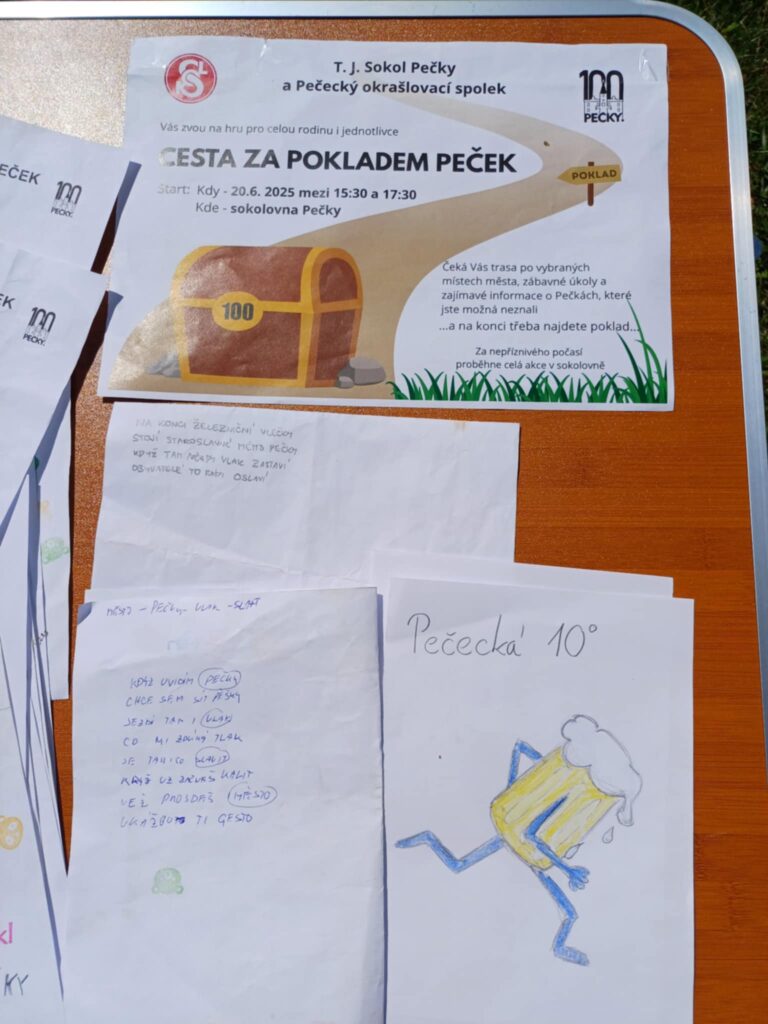 T. J. Sokol Pečky
a Pečecký okrašlovací spolek
100
PEČKY.
Vás zvou na hru pro celou rodinu i jednotlivce
CESTA ZA POKLADEM PEČEK
POKLAD
Start: Kdy - 20.6. 2025 mezi 15:30 a 17:30
Kde - sokolovna Pečky
Čeká Vás trasa po vybraných
místech města, zábavné úkoly a
zajímavé informace o Pečkách, které
jste možná neznali
...a na konci třeba najdete poklad...
100
Za nepříznivého počasí
proběhne celá akce v sokolovně
EČEK
100
PEČKY.
EK
100
PEČKY.
NA KONCI ŽELEZNIČNÍ VLEČKY
STOJÍ STAROSLAVNÉ MĚSTO PEČKY
KDYŽ TAM NĚKDY VLAK ZASTAVÍ
OBYVATELÉ TO RÁDI OSLAVÍ
MĚSTO - PEČKY - VLAK - SLAVIT
KDYŽ UVIDÍM PEČKY
CHCE SEM JÍT PĚŠKY
JEZDÍ TAM I VLAK
CO MI ZDVIHÁ TLAK
JE TAM CO SLAVIT
KDYŽ UŽ ZAČNEŠ KALIT
NEŽ PROJDEŠ MĚSTO
UKÁŽBU TI GESTO
Pečecká 10°
kl
KY